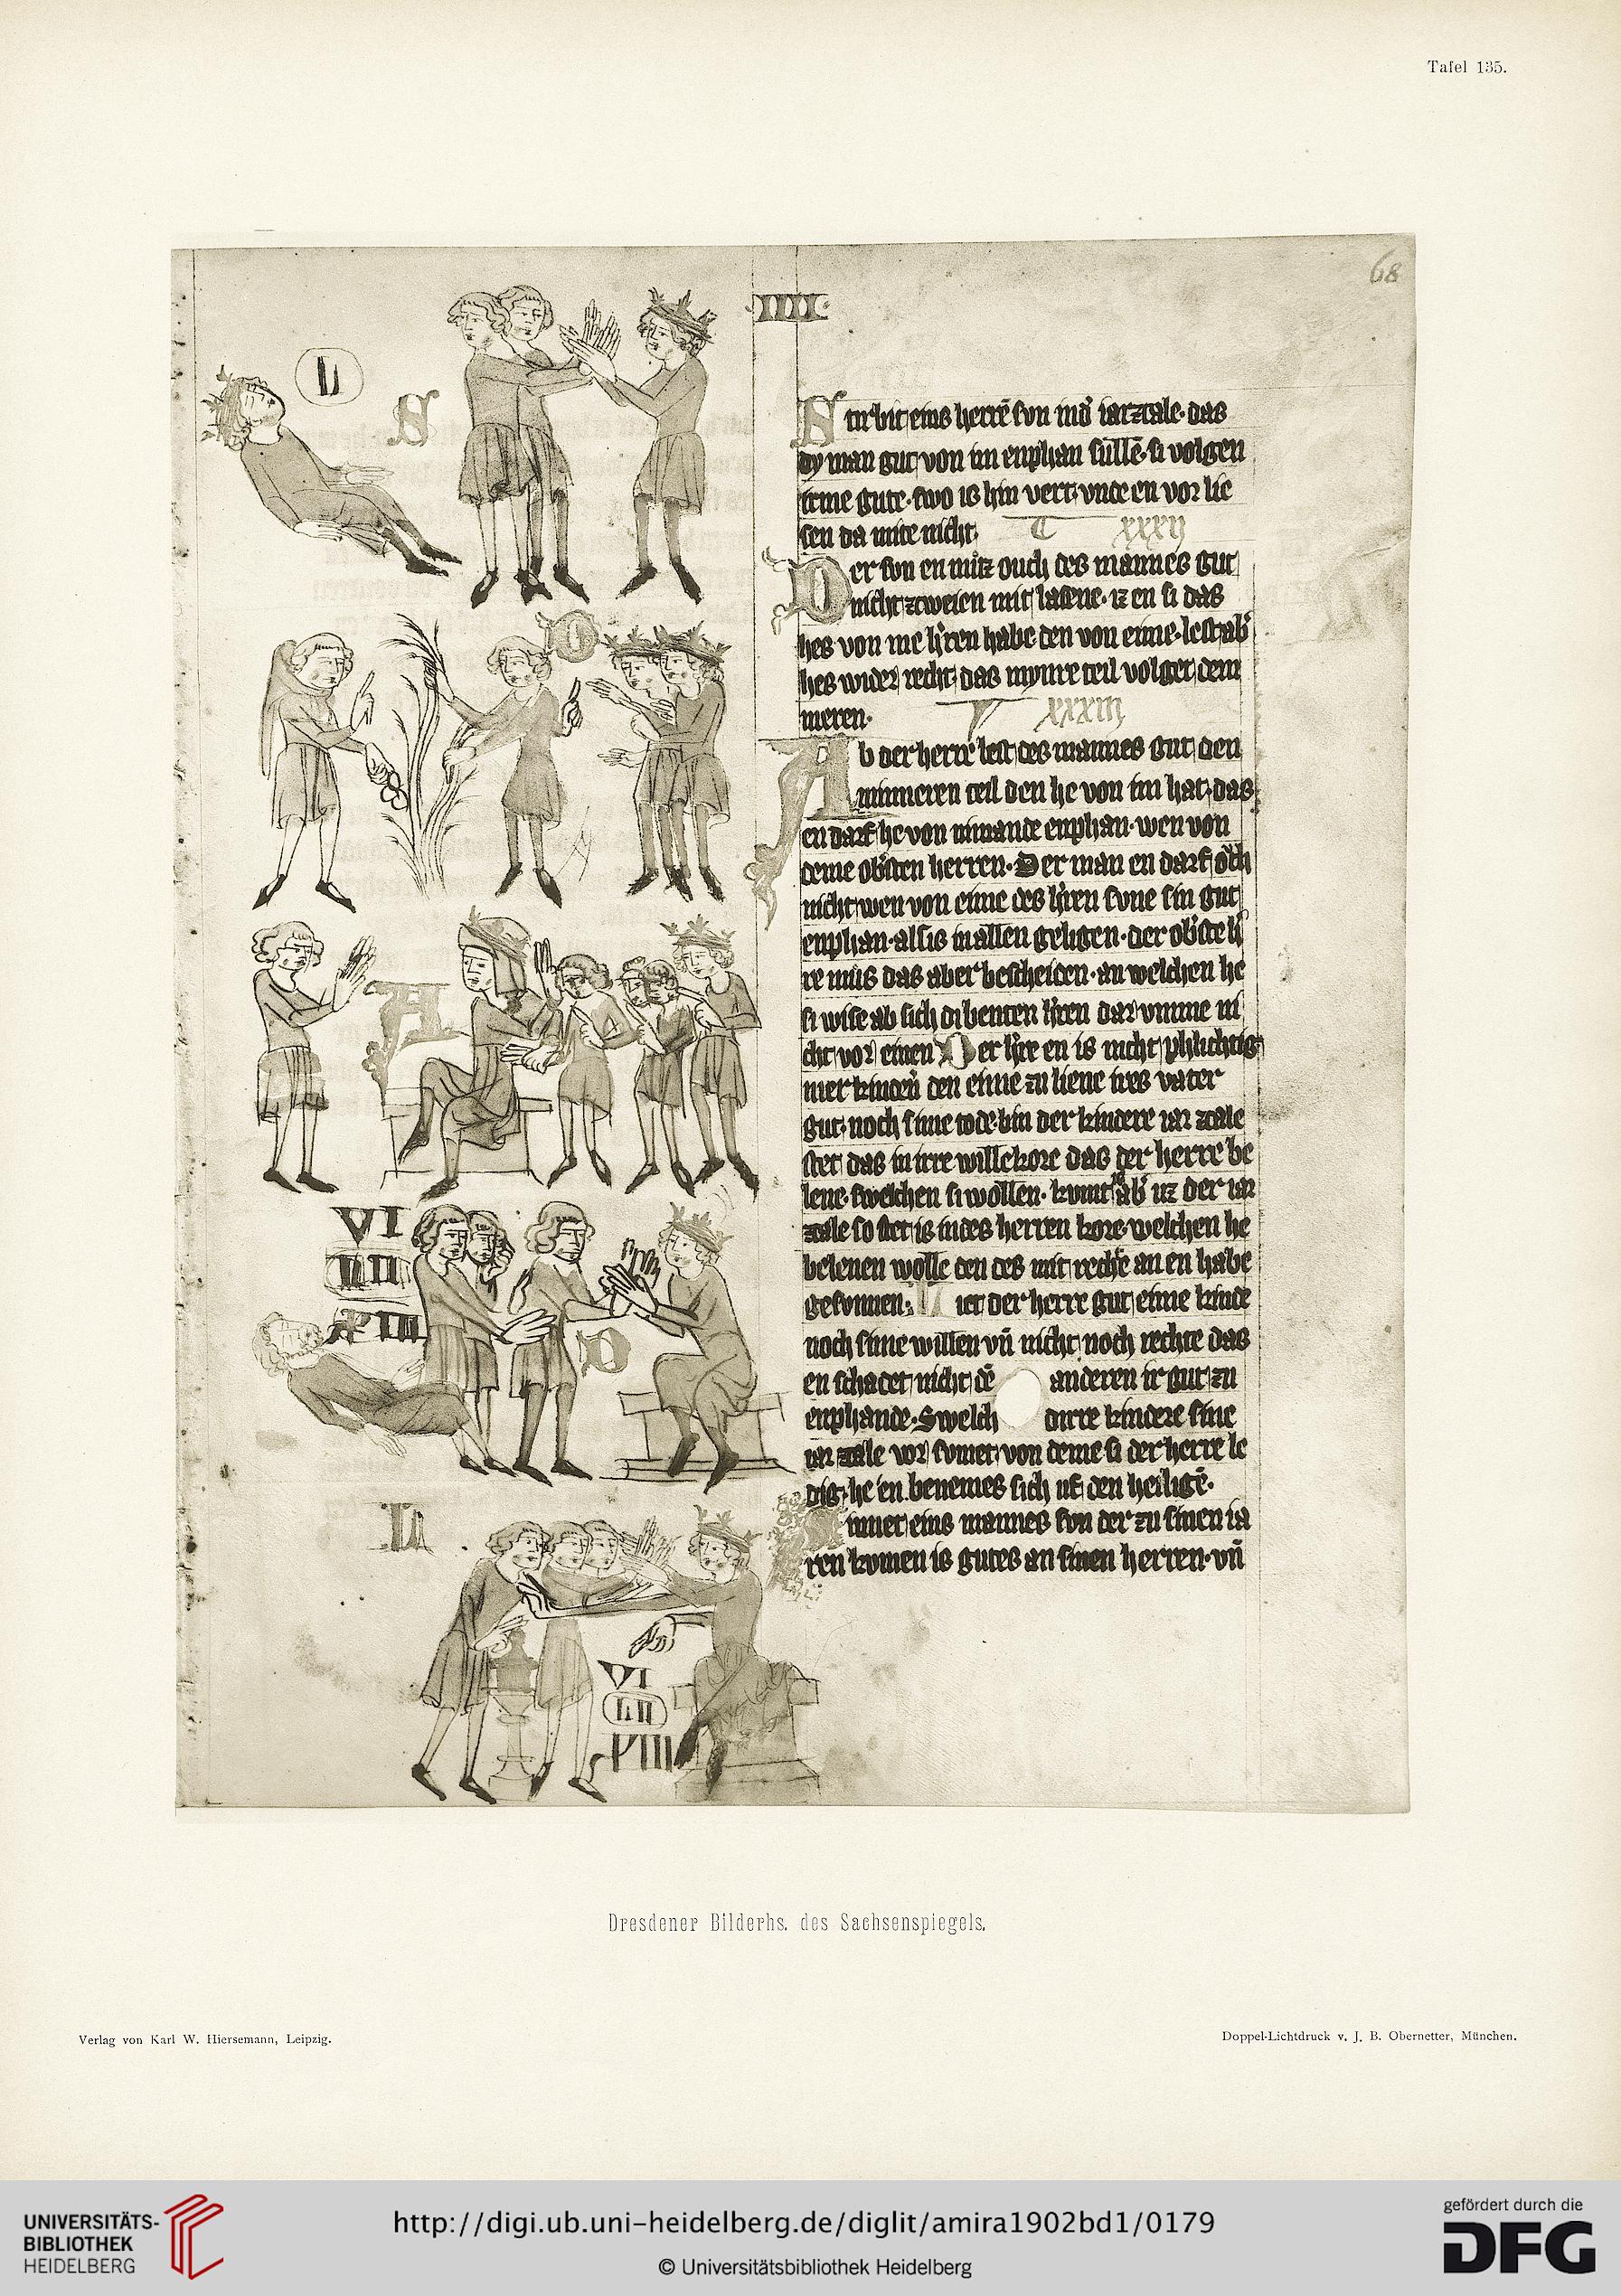 Tafel 135.
68
·IIII·
L
S
Stirbit eins herrē son ind' iarzcale· das
dy man gut von im enphan sullē· si volgen
irme gute· swo is hin vert· vnde en vor lie
sen da mite nicht· xxxij
Der son en mūz ouch des mannes gut
nicht zcweien mit lasene· iz en si das
hes von me h'ren habe den von eime· lest ab'
hes wider recht das mynre teil volget dem
meren· xxxiij
D
Ab der herre lest des mannes gut den
minneren teil den he von im hat· das
en darf he von nimande enphan· wen von
deme ob'sten herren· Der man en darf och
nicht wen von eime des h'ren sone sin gut
enphan· als is in allen geligen· der ob'ste h'
re mus das aber bescheiden· an welchen he
si wise ab sich di benten h'ren dar vmme ni
cht vor einen Der h're en is nicht phlichtig
mer kinden den eime zu liene ires vater
gut· noch sime tode· bin der kindere iar zcale
stet das in irre willekore das der herre be
lene· swelchen si wollen· kvmt ab' uz der iar
zcale so stet is in des herren kore welchen he
belenen wolle den des mit rechte an en habe
gesonnen· Liet der herre gut eime kinde
noch sime willen vn̄ nicht noch rechte das
en schadet nicht dē anderen ir gut zu
enphande· Swelch dirre kindere sine
iar zcale vor sumet von deme si der herre le
dig· he en benemes sich uf den heiligē·
Sinnet eins mannes son der zu sinen ia
ren komen is gutes an sinen herren· vn̄
A
VI
LII
D
L
VI
LII
Dresdener Bilderhs. des Sachsenspiegels.
Verlag von Karl W. Hiersemann, Leipzig.
Doppel-Lichtdruck v. J. B. Obernetter, München.
UNIVERSITÄTS-
BIBLIOTHEK
HEIDELBERG
http://digi.ub.uni-heidelberg.de/diglit/amira1902bd1/0179
© Universitätsbibliothek Heidelberg
gefördert durch die
DFG